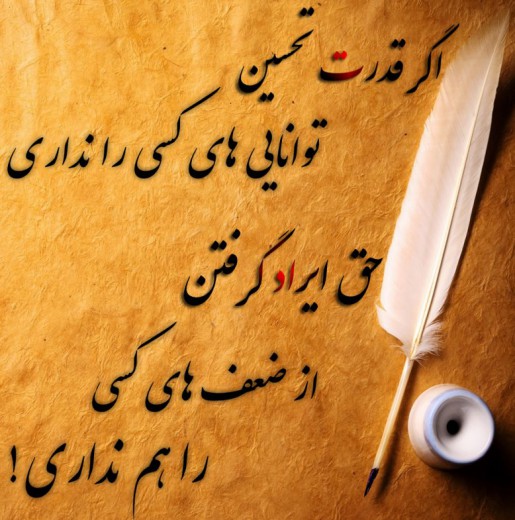 اگر قدرت تحسین
توانایی های کسی را نداری
حق ایراد گرفتن
از ضعف های کسی
را هم نداری!